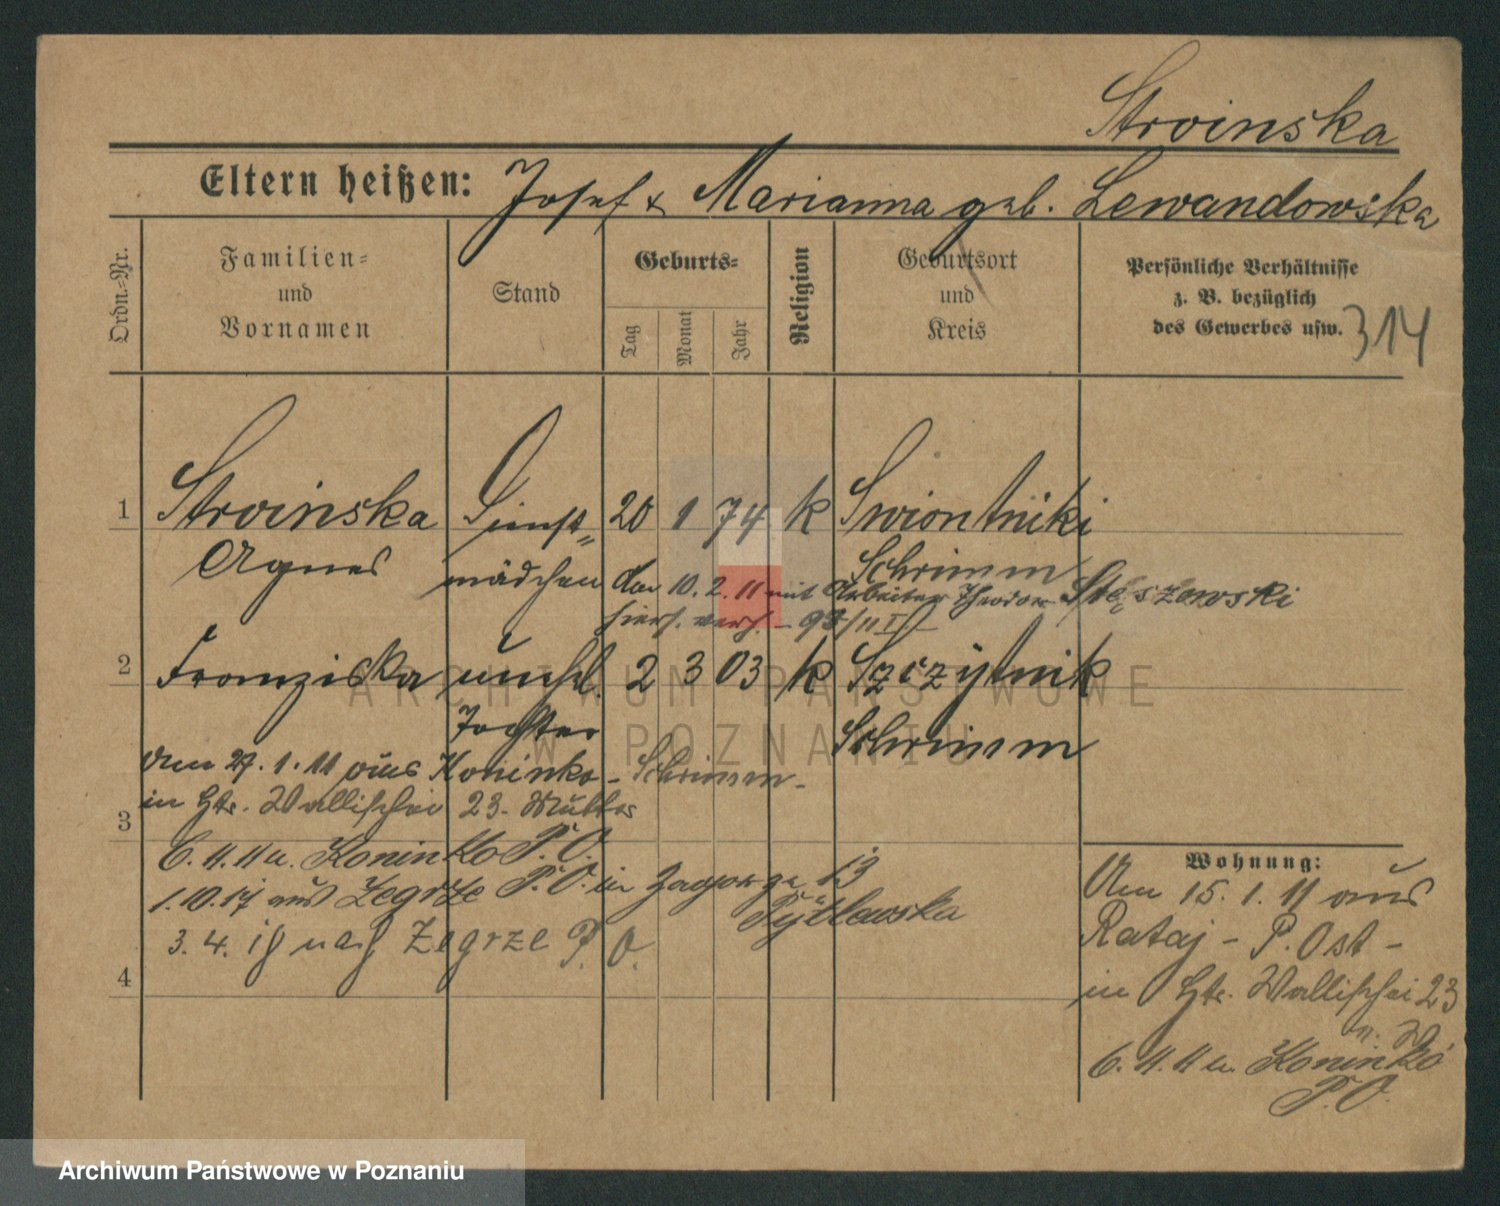 Stroinska
Eltern heißen: Josef & Marianna geb. Lewandowska
Ordn.=Nr.
Familien=
und
Vornamen
Stand
Geburts=
Tag
Monat
Jahr
Religion
Geburtsort
und
Kreis
Persönliche Verhältnisse
z. B. bezüglich
des Gewerbes usw.
314
1 Stroinska Dienst= 20 1 74 k Swiontniki
Agnes mädchen Schrimm
den 10. 2. 11 mit Arbeiter Theodor Stęszewski
hier verh. – 93/11 I –
2 Franziska unehl. 2 3 03 k Szczytnik
Tochter Schrimm
Am 27. 1. 11 aus Koninko - Schrimm -
in Htr. Wallischei 23. Mutter
3
6. 11. 11 n. Koninko P. O.
1. 10. 17 aus Zegrze P. O. in Zagorze 13
Pytlewska
3. 4. 18 nach Zegrze P. O.
4
Wohnung:
Am 15. 1. 11 aus
Rataj - P. Ost -
in Htr. Wallischei 23
6. 11. 11 n. Koninko
P. O.
ARCHIWUM PAŃSTWOWE
W POZNANIU
Archiwum Państwowe w Poznaniu